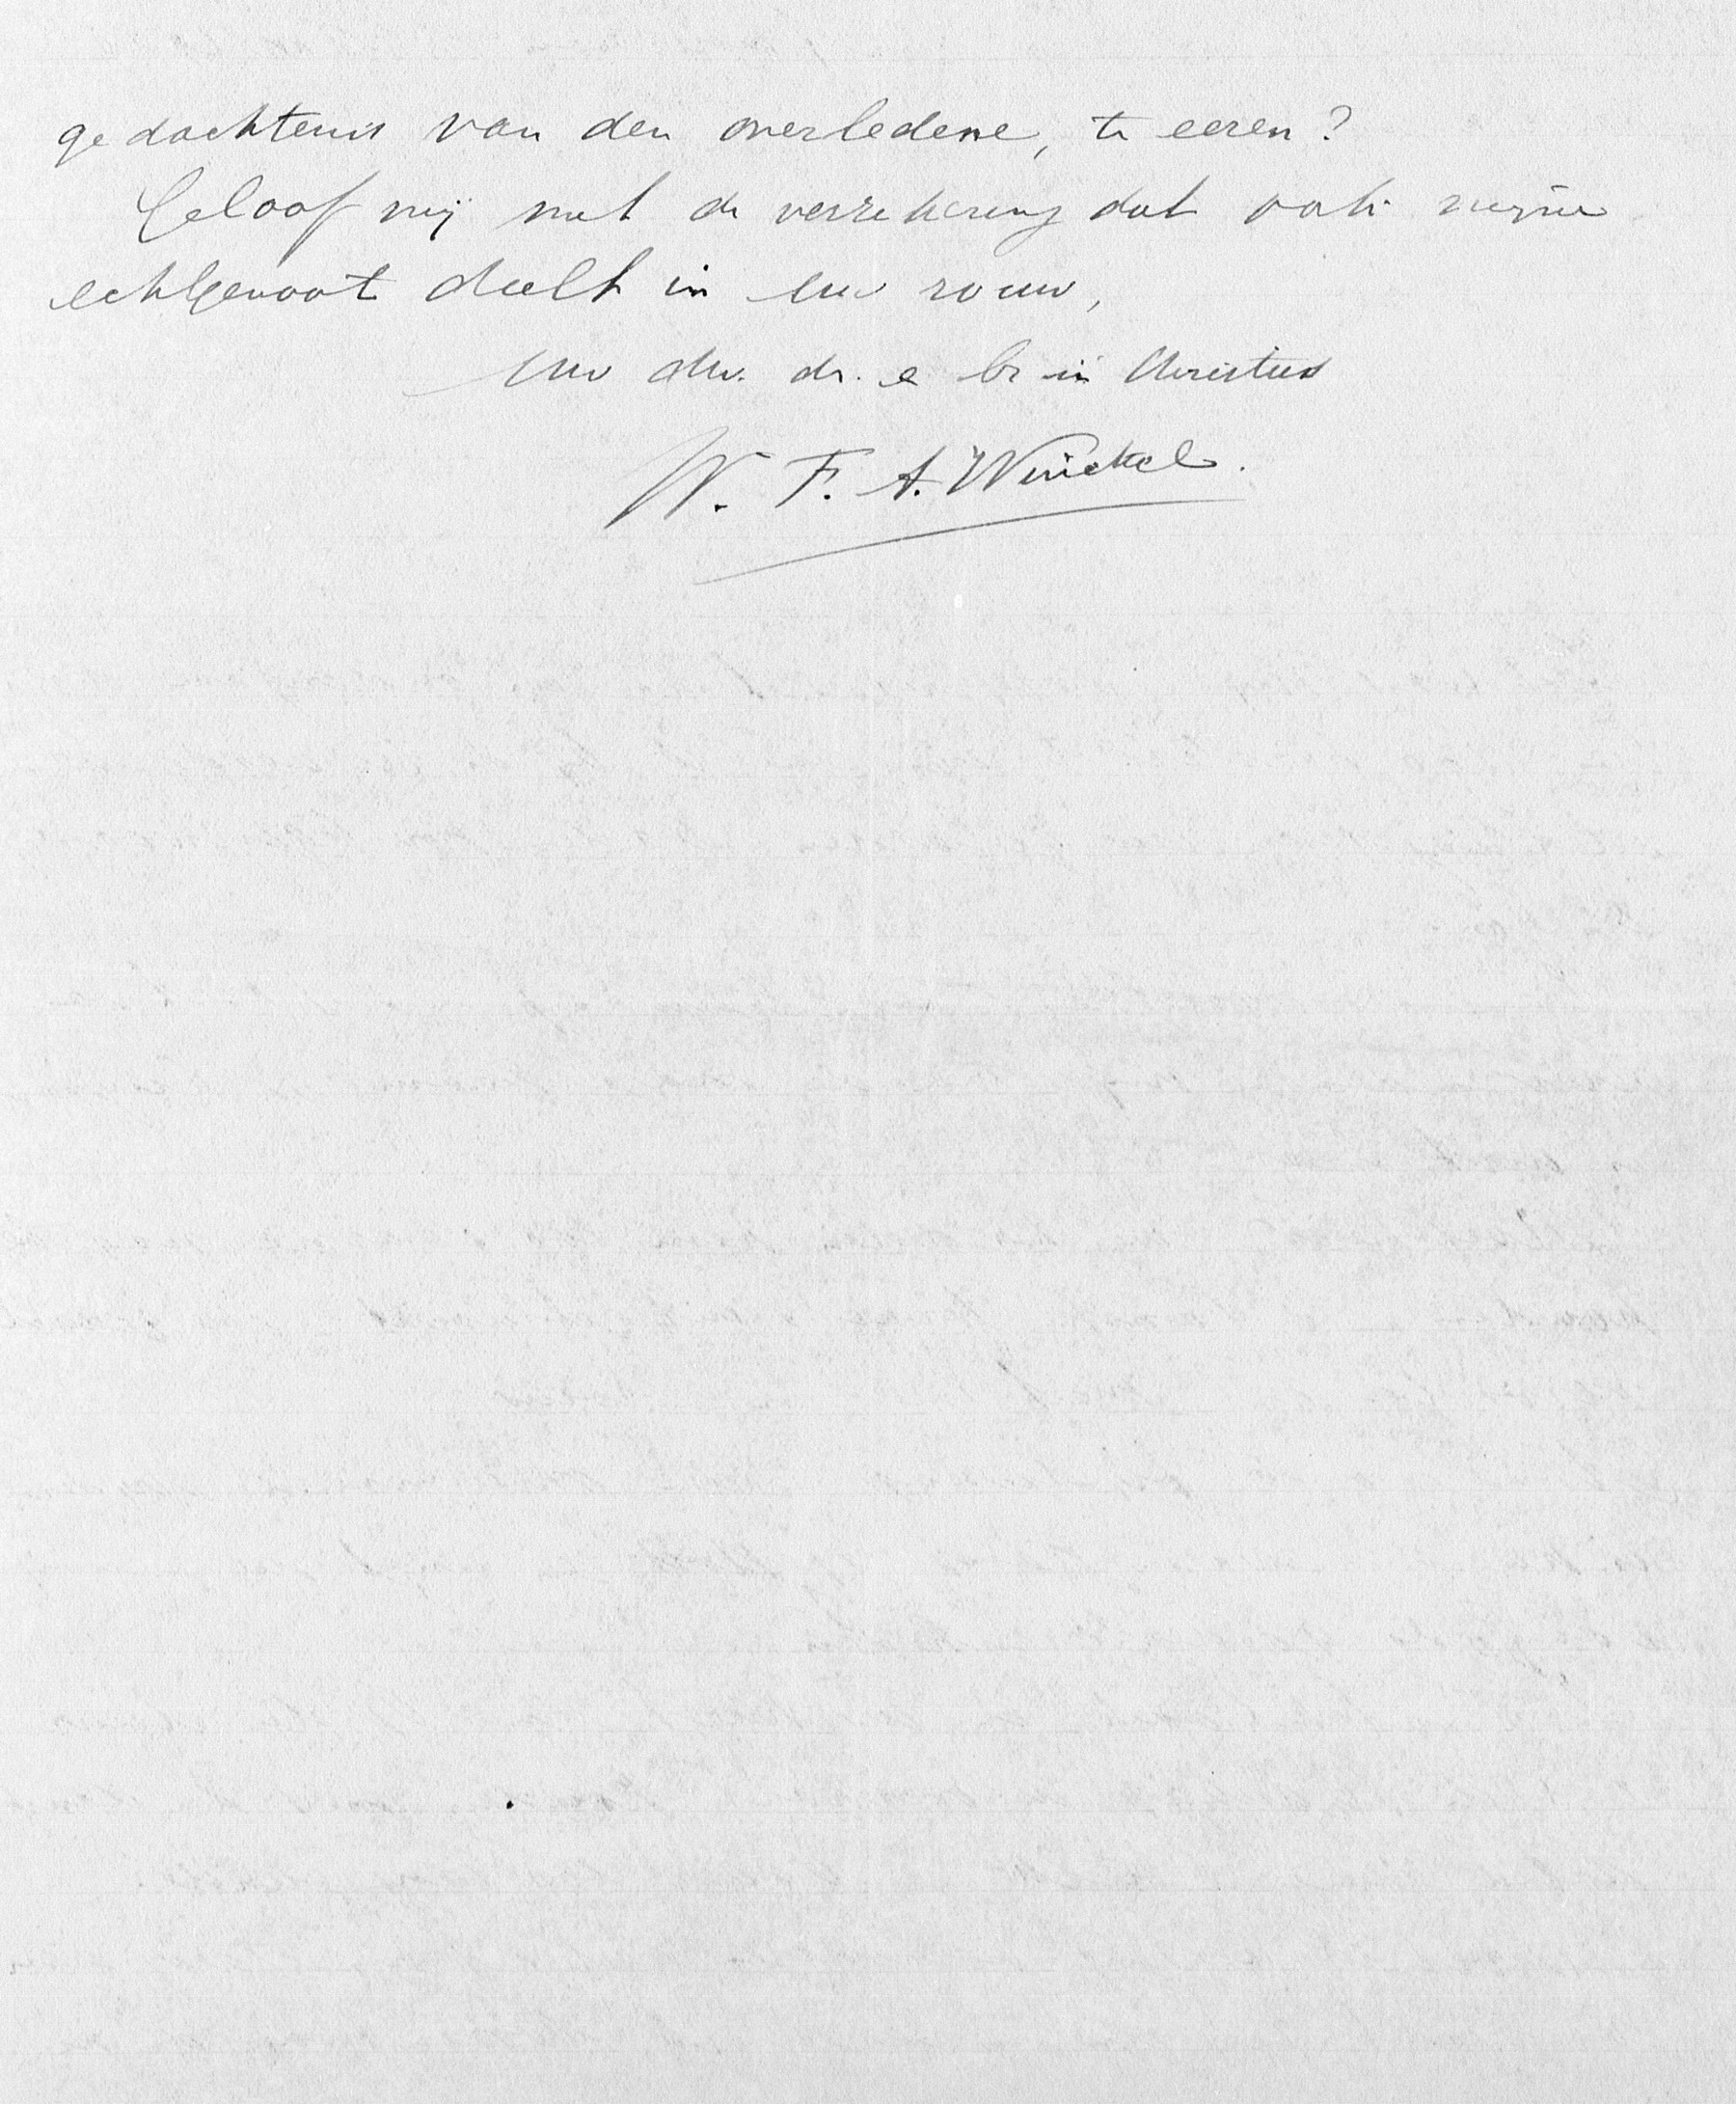 gedachtenis van den overledene, te eeren?
Geloof mij met de verzekering dat ook mijne
echtgenoot deelt in Uw rouw,
Uw dw. dr. e br in Christus
W. F. A. Winckel.